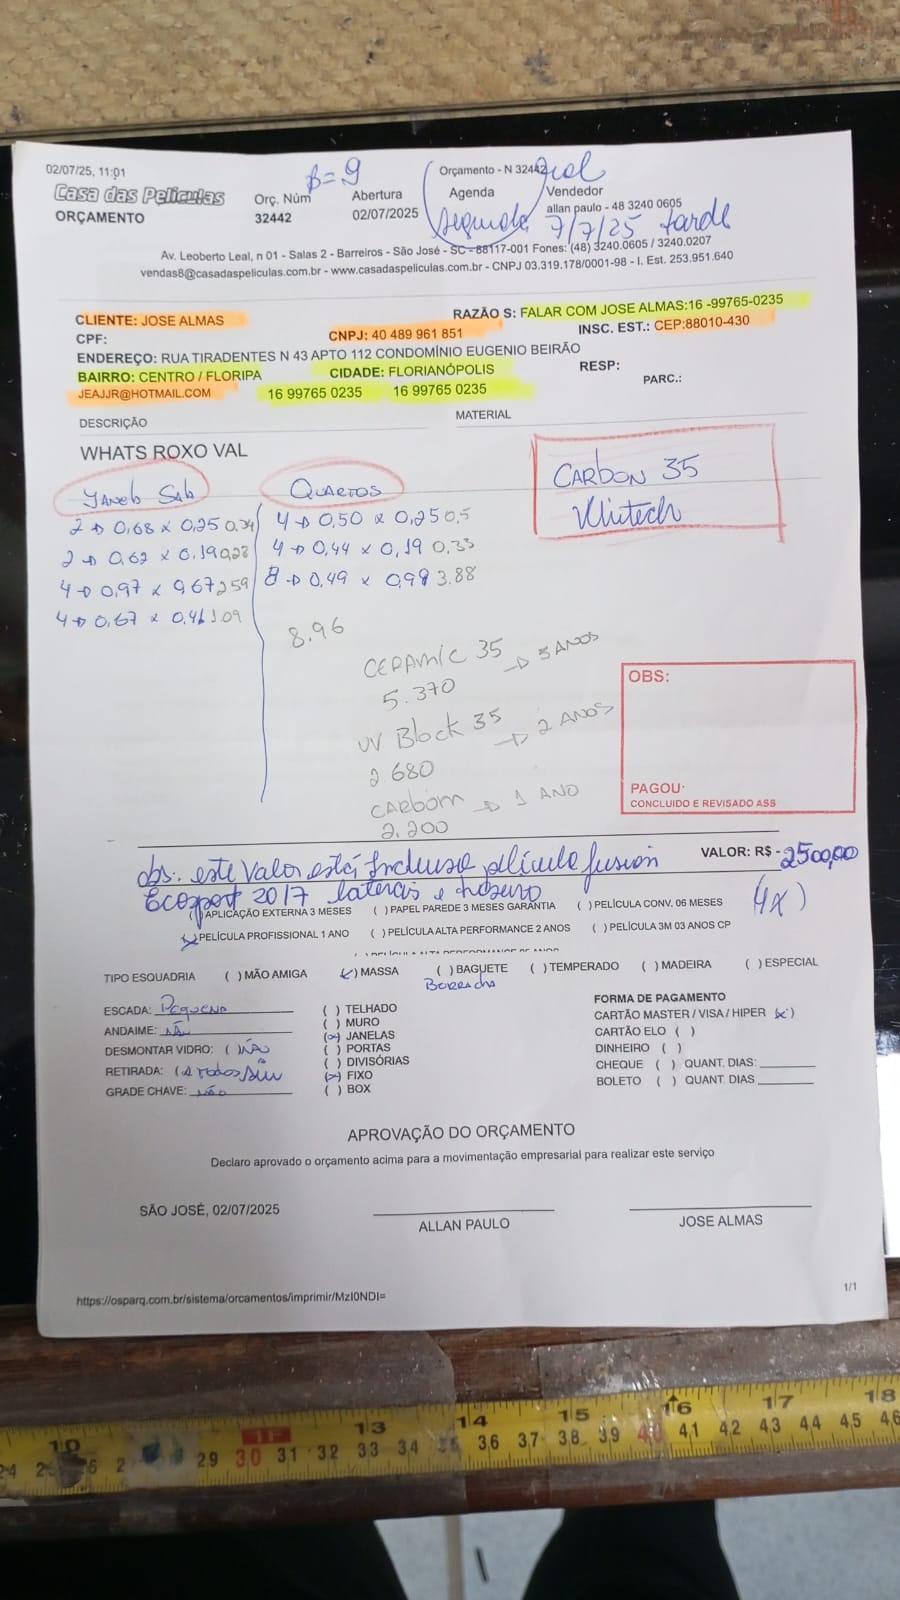 02/07/25, 11:01
Orçamento - N 32442
Casa das Peliculas
ORÇAMENTO
Orç. Núm
32442
Abertura
02/07/2025
Agenda
Segunda 7/7/25 tarde
Vendedor
allan paulo - 48 3240 0605
Av. Leoberto Leal, n 01 - Salas 2 - Barreiros - São José - SC - 88117-001 Fones: (48) 3240.0605 / 3240.0207
vendas8@casadaspeliculas.com.br - www.casadaspeliculas.com.br - CNPJ 03.319.178/0001-98 - I. Est. 253.951.640
CLIENTE: JOSE ALMAS
RAZÃO S: FALAR COM JOSE ALMAS:16 -99765-0235
CPF:
CNPJ: 40 489 961 851
INSC. EST.: CEP:88010-430
ENDEREÇO: RUA TIRADENTES N 43 APTO 112 CONDOMÍNIO EUGENIO BEIRÃO
BAIRRO: CENTRO / FLORIPA
CIDADE: FLORIANÓPOLIS
RESP:
JEAJJR@HOTMAIL.COM
16 99765 0235
16 99765 0235
PARC.:
DESCRIÇÃO
MATERIAL
WHATS ROXO VAL
CARBON 35
QUARTOS
2 → 0,68 x 0,25 0.34
4 → 0,50 x 0,25 0.5
2 → 0,62 x 0,19 0,23
4 → 0,44 x 0,19 0,33
4 → 0,97 x 0,67 2.59
8 → 0,49 x 0,99 3.88
4 → 0,67 x 0,41 1.09
8.96
CERAMIC 35 → 5 ANOS
5.370
UV Block 35 → 2 ANOS
2.680
CARBOM → 1 ANO
2.200
OBS:
PAGOU:
CONCLUIDO E REVISADO ASS
VALOR: R$ - 2500,00
obs: este valor está Incluso pelicula fusion
Ecosport 2017 laterais e traseiro
(4x)
( ) APLICAÇÃO EXTERNA 3 MESES ( ) PAPEL PAREDE 3 MESES GARANTIA ( ) PELÍCULA CONV. 06 MESES
(x) PELÍCULA PROFISSIONAL 1 ANO ( ) PELÍCULA ALTA PERFORMANCE 2 ANOS ( ) PELÍCULA 3M 03 ANOS CP
TIPO ESQUADRIA ( ) MÃO AMIGA (x) MASSA ( ) BAGUETE ( ) TEMPERADO ( ) MADEIRA ( ) ESPECIAL
Borracha
ESCADA: Pequena
ANDAIME: NÃO
DESMONTAR VIDRO: ( NÃO
RETIRADA: ( todos sim
GRADE CHAVE: NÃO
( ) TELHADO
( ) MURO
(x) JANELAS
( ) PORTAS
( ) DIVISÓRIAS
(x) FIXO
( ) BOX
FORMA DE PAGAMENTO
CARTÃO MASTER / VISA / HIPER (x)
CARTÃO ELO ( )
DINHEIRO ( )
CHEQUE ( ) QUANT. DIAS:
BOLETO ( ) QUANT. DIAS
APROVAÇÃO DO ORÇAMENTO
Declaro aprovado o orçamento acima para a movimentação empresarial para realizar este serviço
SÃO JOSÉ, 02/07/2025
ALLAN PAULO
JOSE ALMAS
https://osparq.com.br/sistema/orcamentos/imprimir/MzI0NDI=
1/1
10 11 13 14 15 16 17 18
29 30 31 32 33 34 36 37 38 39 40 41 42 43 44 45 46